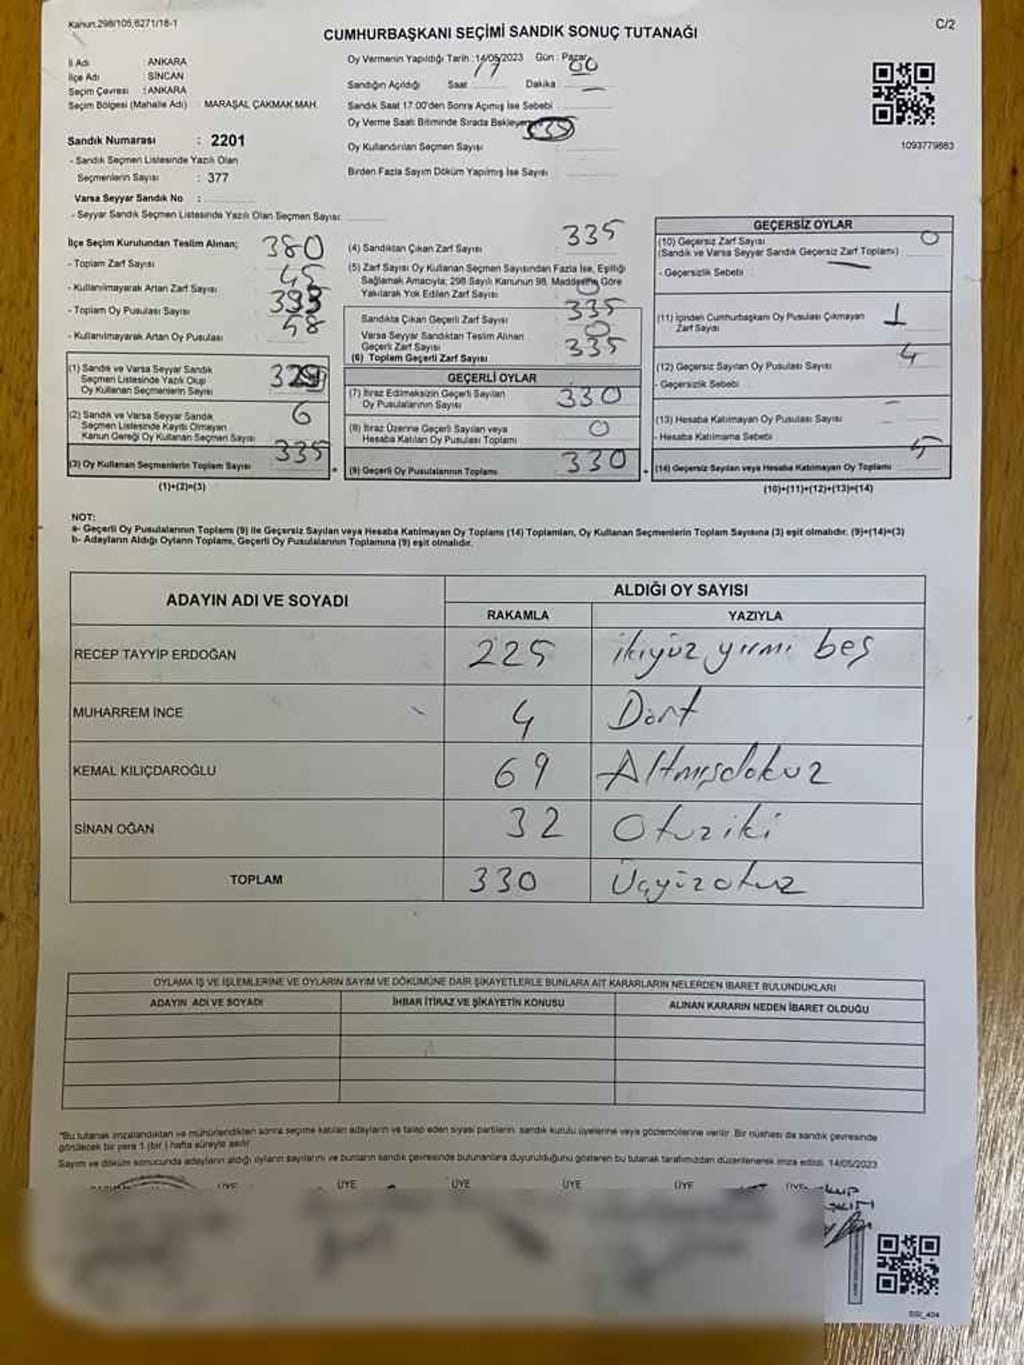 Kanun.298/105,6271/18-1
C/2
CUMHURBAŞKANI SEÇİMİ SANDIK SONUÇ TUTANAĞI
İl Adı : ANKARA
İlçe Adı : SİNCAN
Seçim Çevresi : ANKARA
Seçim Bölgesi (Mahalle Adı) : MARAŞAL ÇAKMAK MAH.
Sandık Numarası : 2201
- Sandık Seçmen Listesinde Yazılı Olan
Seçmenlerin Sayısı : 377
Varsa Seyyar Sandık No :
- Seyyar Sandık Seçmen Listesinde Yazılı Olan Seçmen Sayısı:
Oy Vermenin Yapıldığı Tarih : 14/05/2023 Gün : Pazar
Sandığın Açıldığı Saat 17 Dakika 00
Sandık Saat 17.00'den Sonra Açımış İse Sebebi
Oy Verme Saati Bitiminde Sırada Bekleyen
Oy Kullandırılan Seçmen Sayısı
Birden Fazla Sayım Döküm Yapılmış İse Sayısı
1093779883
İlçe Seçim Kurulundan Teslim Alınan;
- Toplam Zarf Sayısı 380
- Kullanılmayarak Artan Zarf Sayısı 45
- Toplam Oy Pusulası Sayısı
- Kullanılmayarak Artan Oy Pusulası 48
(1) Sandık ve Varsa Seyyar Sandık
Seçmen Listesinde Yazılı Olup
Oy Kullanan Seçmenlerin Sayısı 329
(2) Sandık ve Varsa Seyyar Sandık
Seçmen Listesinde Kayıtlı Olmayan
Kanun Gereği Oy Kullanan Seçmen Sayısı 6
(3) Oy Kullanan Seçmenlerin Toplam Sayısı 335
(1)+(2)=(3)
(4) Sandıktan Çıkan Zarf Sayısı 335
(5) Zarf Sayısı Oy Kullanan Seçmen Sayısından Fazla İse, Eşitliği
Sağlamak Amacıyla; 298 Sayılı Kanunun 98. Maddesine Göre
Yakılarak Yok Edilen Zarf Sayısı 0
Sandıkta Çıkan Geçerli Zarf Sayısı 335
Varsa Seyyar Sandıktan Teslim Alınan
Geçerli Zarf Sayısı 0
(6) Toplam Geçerli Zarf Sayısı 335
GEÇERLİ OYLAR
(7) İtiraz Edilmeksizin Geçerli Sayılan
Oy Pusulalarının Sayısı 330
(8) İtiraz Üzerine Geçerli Sayılan veya
Hesaba Katılan Oy Pusulası Toplamı 0
(9) Geçerli Oy Pusulalarının Toplamı 330
GEÇERSİZ OYLAR
(10) Geçersiz Zarf Sayısı 0
(Sandık ve Varsa Seyyar Sandık Geçersiz Zarf Toplamı)
- Geçersizlik Sebebi
(11) İçinden Cumhurbaşkanı Oy Pusulası Çıkmayan
Zarf Sayısı 1
(12) Geçersiz Sayılan Oy Pusulası Sayısı 4
- Geçersizlik Sebebi
(13) Hesaba Katılmayan Oy Pusulası Sayısı
- Hesaba Katılmama Sebebi
(14) Geçersiz Sayılan veya Hesaba Katılmayan Oy Toplamı 5
(10)+(11)+(12)+(13)=(14)
NOT:
a- Geçerli Oy Pusulalarının Toplamı (9) ile Geçersiz Sayılan veya Hesaba Katılmayan Oy Toplamı (14) Toplamları, Oy Kullanan Seçmenlerin Toplam Sayısına (3) eşit olmalıdır. (9)+(14)=(3)
b- Adayların Aldığı Oyların Toplamı, Geçerli Oy Pusulalarının Toplamına (9) eşit olmalıdır.
ADAYIN ADI VE SOYADI ALDIĞI OY SAYISI
RAKAMLA YAZIYLA
RECEP TAYYİP ERDOĞAN 225 ikiyüz yirmi beş
MUHARREM İNCE 4 Dört
KEMAL KILIÇDAROĞLU 69 Altmışdokuz
SİNAN OĞAN 32 Otuziki
TOPLAM 330 Üçyüzotuz
OYLAMA İŞ VE İŞLEMLERİNE VE OYLARIN SAYIM VE DÖKÜMÜNE DAİR ŞİKAYETLERLE BUNLARA AİT KARARLARIN NELERDEN İBARET BULUNDUKLARI
ADAYIN ADI VE SOYADI İHBAR İTİRAZ VE ŞİKAYETİN KONUSU ALINAN KARARIN NEDEN İBARET OLDUĞU
*Bu tutanak imzalandıktan ve mühürlendikten sonra seçime katılan adayların ve talep eden siyasi partilerin sandık kurulu üyelerine veya gözlemcilerine verilir. Bir nüshası da sandık çevresinde
görülecek bir yere 1 (bir ) hafta süreyle asılır.
Sayım ve döküm sonucunda adayların aldığı oyların sayılarını ve bunların sandık çevresinde bulunanlara duyurulduğunu gösteren bu tutanak tarafımızdan düzenlenerek imza edildi. 14/05/2023
ÜYE ÜYE ÜYE ÜYE ÜYE ÜYE